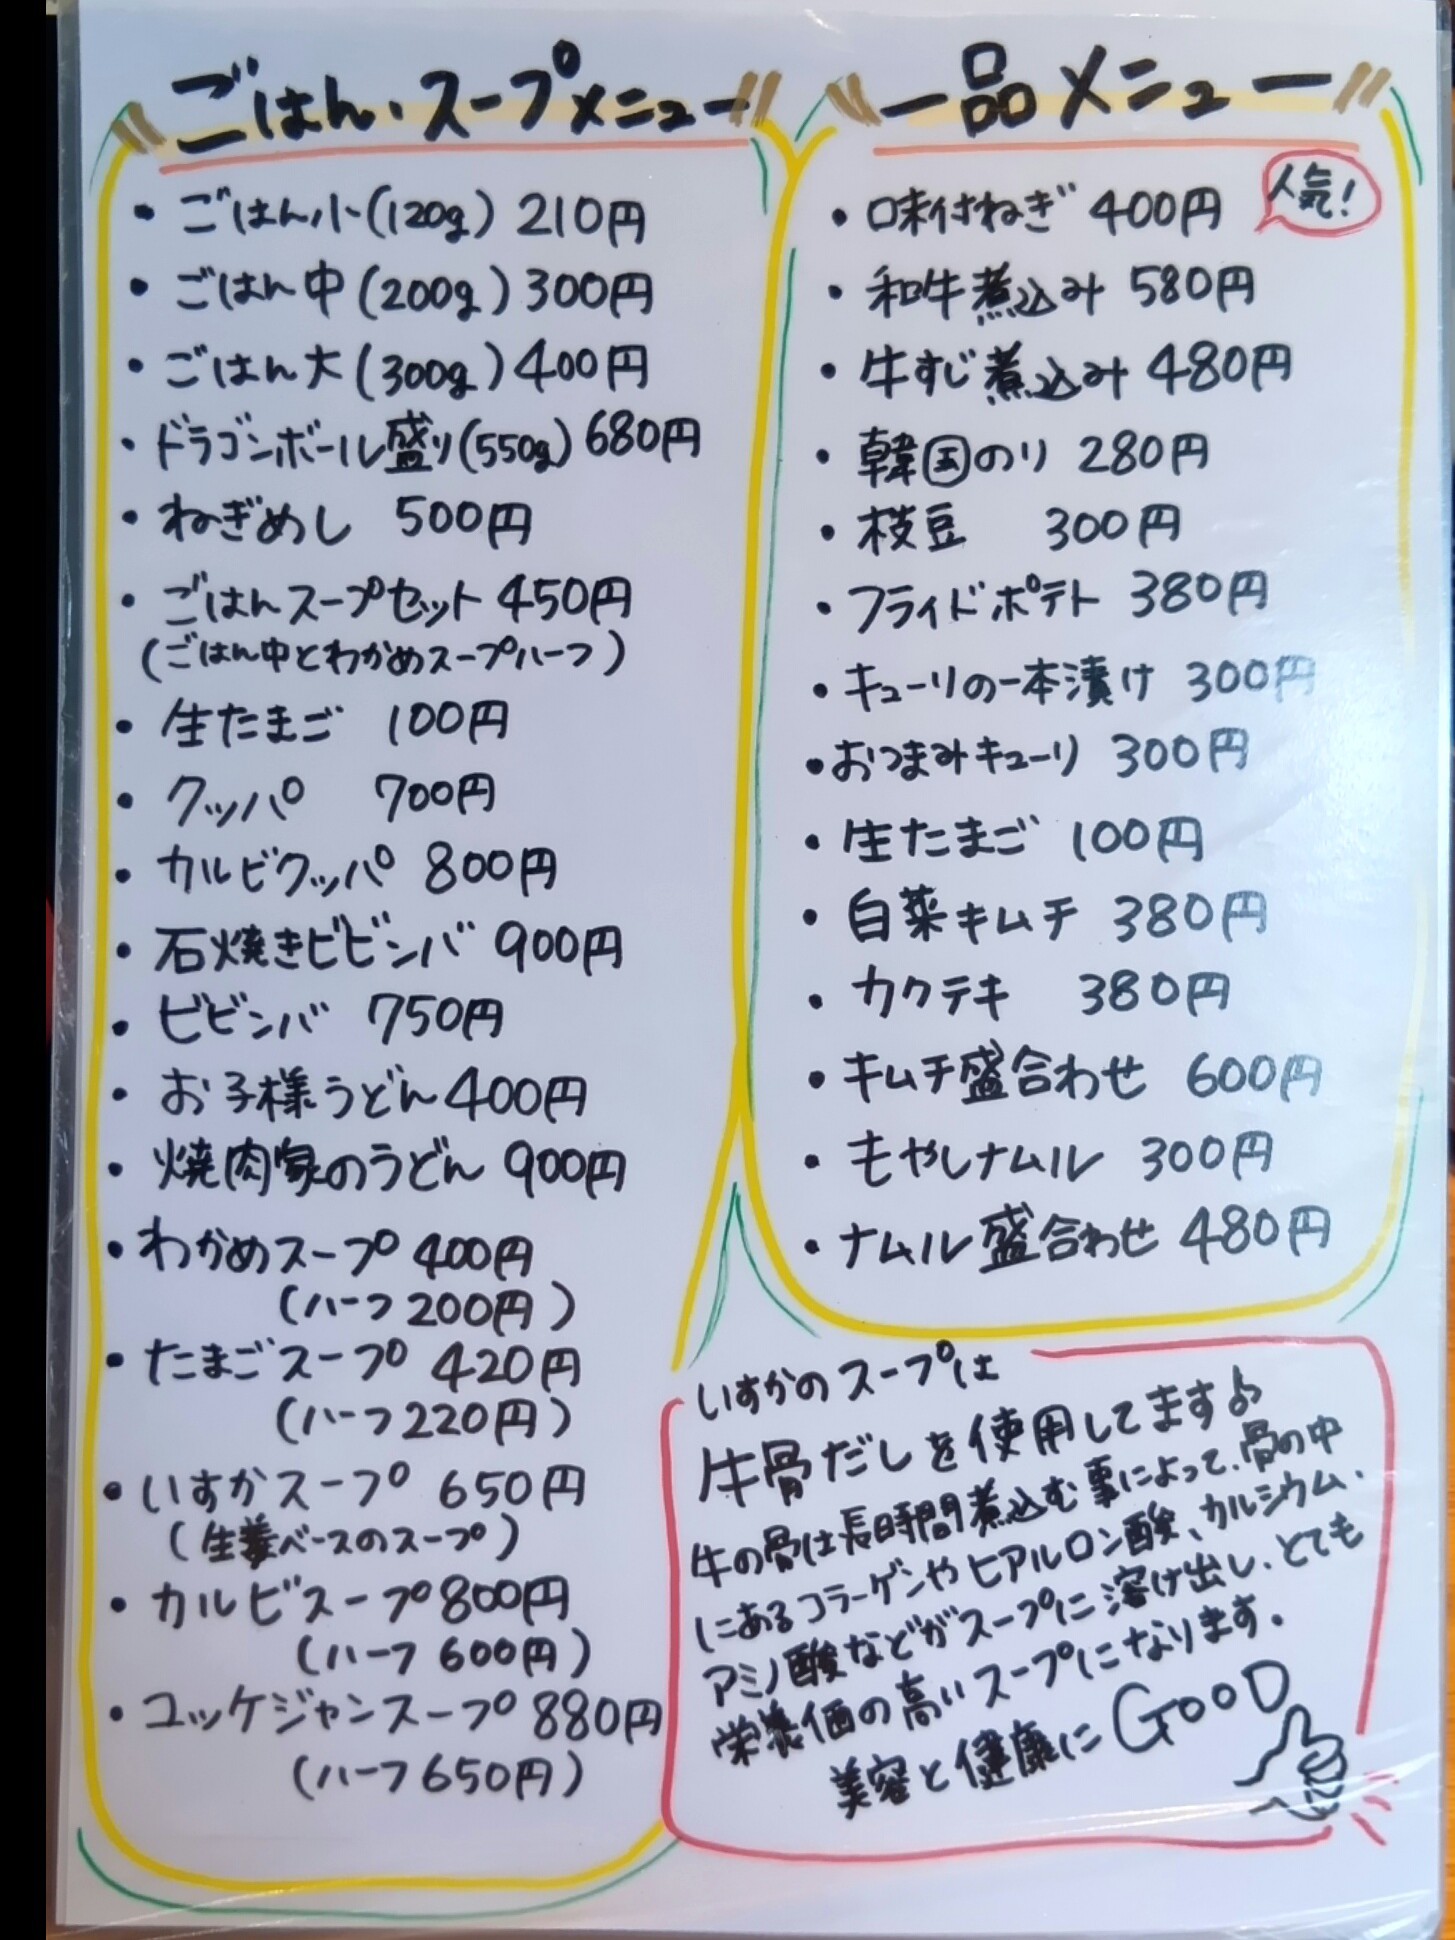 ごはん・スープメニュー
・ごはん小(120g) 210円
・ごはん中(200g) 300円
・ごはん大(300g) 400円
・ドラゴンボール盛り(550g) 680円
・ねぎめし 500円
・ごはんスープセット 450円
(ごはん中とわかめスープハーフ)
・生たまご 100円
・クッパ 700円
・カルビクッパ 800円
・石焼きビビンバ 900円
・ビビンバ 750円
・お子様うどん 400円
・焼肉家のうどん 900円
・わかめスープ 400円
(ハーフ 200円)
・たまごスープ 420円
(ハーフ 220円)
・いすかスープ 650円
(生姜ベースのスープ)
・カルビスープ 800円
(ハーフ 600円)
・ユッケジャンスープ 880円
(ハーフ 650円)
一品メニュー
・味付ねぎ 400円 人気!
・和牛煮込み 580円
・牛すじ煮込み 480円
・韓国のり 280円
・枝豆 300円
・フライドポテト 380円
・キューリの一本漬け 300円
・おつまみキューリ 300円
・生たまご 100円
・白菜キムチ 380円
・カクテキ 380円
・キムチ盛合わせ 600円
・もやしナムル 300円
・ナムル盛合わせ 480円
いすかのスープは
牛骨だしを使用してます♪
牛の骨は長時間煮込む事によって、骨の中
にあるコラーゲンやヒアルロン酸、カルシウム、
アミノ酸などがスープに溶け出し、とても
栄養価の高いスープになります。
美容と健康にGOOD